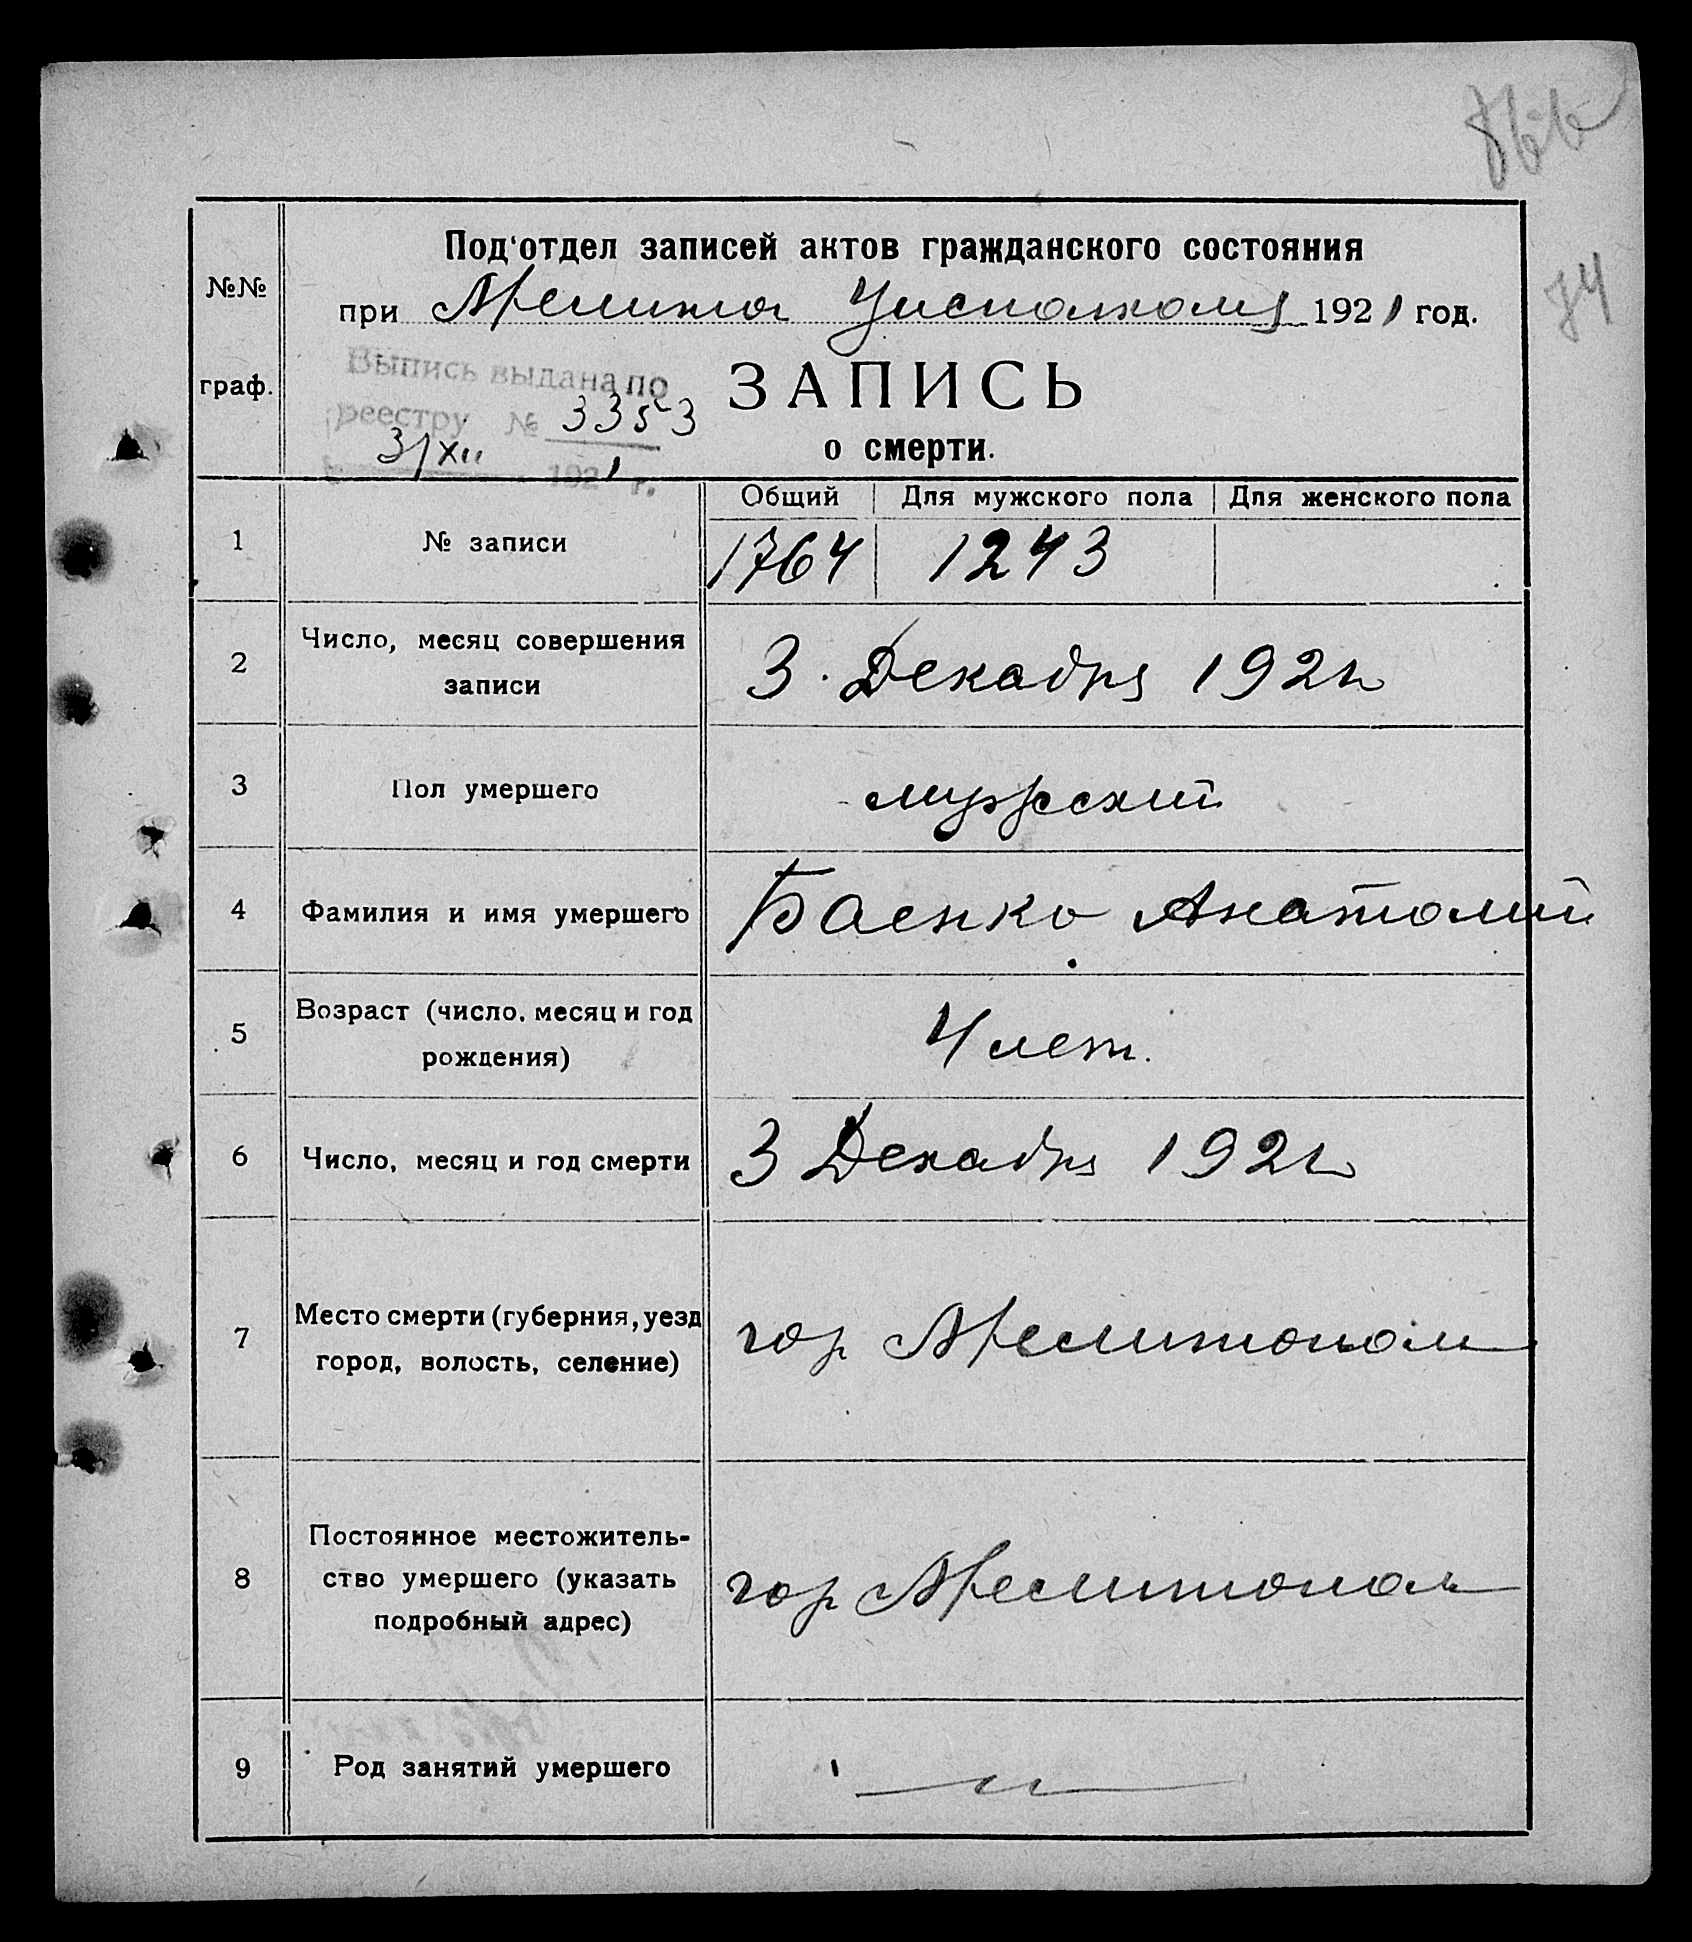 866
74
№№ граф.
Под'отдел записей актов гражданского состояния
при Мелито Уисполкомъ 1921 год.
Выпись выдана по
реестру № 3353
3/XII 1921 г.
ЗАПИСЬ
о смерти.
Общий Для мужского пола Для женского пола
1 № записи 1764 1243
2 Число, месяц совершения
записи
3 Декабря 1921 г.
3 Пол умершего мужский
4 Фамилия и имя умершего Баенко Анатолий
5 Возраст (число, месяц и год
рождения)
4 лет.
6 Число, месяц и год смерти 3 Декабря 1921 г.
7 Место смерти (губерния, уезд
город, волость, селение)
гор Мелитополь
8 Постоянное местожитель-
ство умершего (указать
подробный адрес)
гор Мелитополь
9 Род занятий умершего